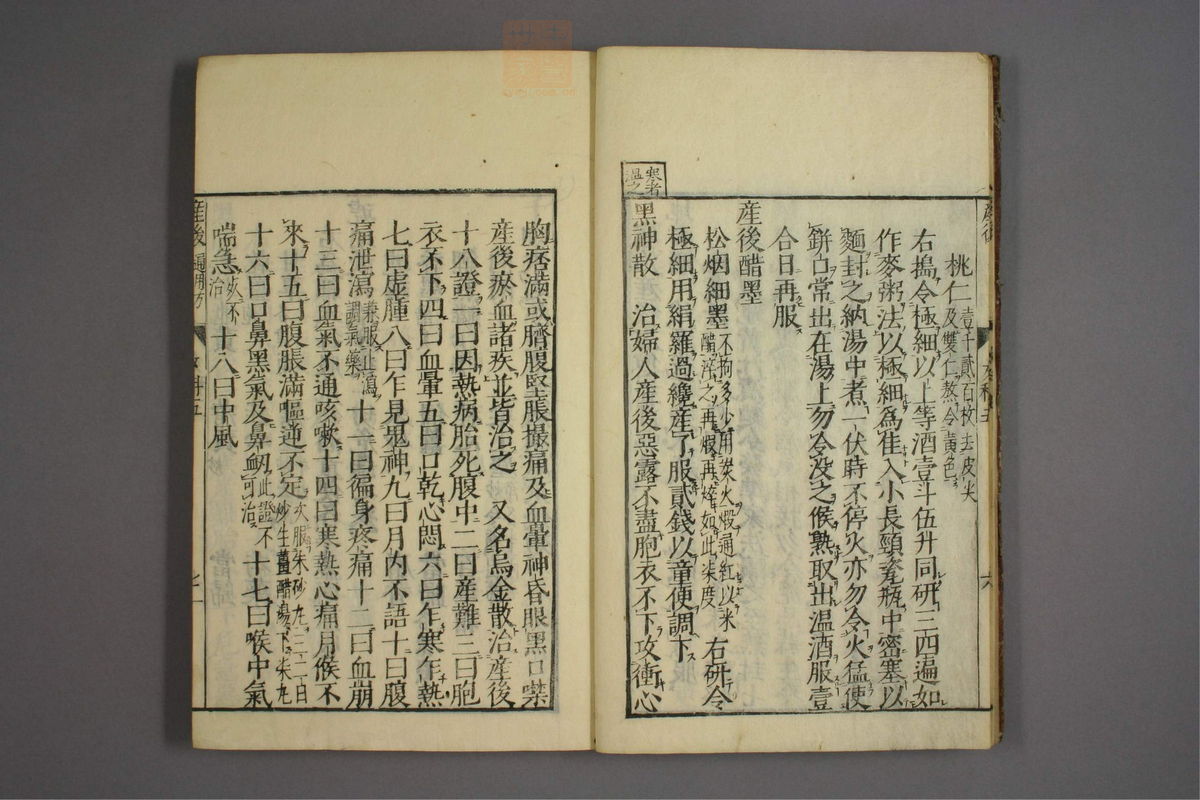 寒者
温之
桃仁 壹千貳百枚去皮尖
及雙仁熬令黄色
右搗令極細以上等酒壹斗伍升同研三四遍如
作麥粥法以極細爲佳入小長頸瓷瓶中密塞以
麵封之納湯中煮一伏時不停火亦勿令火猛使
餅口常出在湯上勿令没之候熟取出温酒服壹
合日再服
産後醋墨
松烟細墨 不拘多少用炭火煆通紅以米
醋淬之再煆再淬如此柒度 右研令
極細用絹羅過纔産了服貳錢以童便調下
黑神散 治婦人産後惡露不盡胞衣不下攻衝心
胸痞滿或臍腹堅脹撮痛及血暈神昏眼黑口噤
産後瘀血諸疾並皆治之 又名烏金散治産後
十八證一曰因熱病胎死腹中二曰産難三曰胞
衣不下四曰血暈五曰口乾心悶六曰乍寒乍熱
七曰虚腫八曰乍見鬼神九曰月内不語十曰腹
痛泄瀉 兼服止瀉
調氣藥 十一曰徧身疼痛十二曰血崩
十三曰血氣不通咳嗽十四曰寒熱心痛月候不
來十五曰腹脹滿嘔逆不定
十六曰口鼻黑氣及鼻衂 此證不
可治 十七曰喉中氣
喘急 此不
治 十八曰中風
産後 通用方